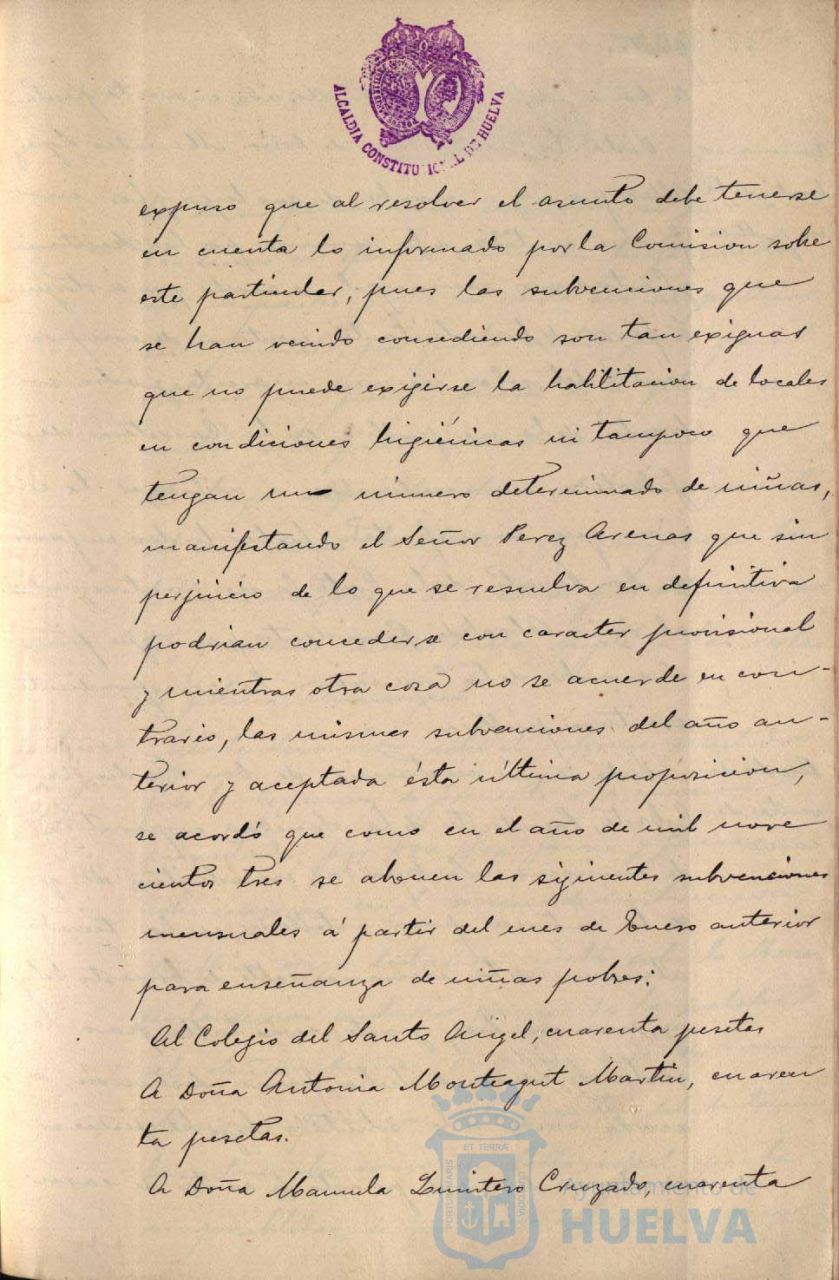 ALCALDIA CONSTITUCIONAL DE HUELVA
expuso que al resolver el asunto debe tenerse
en cuenta lo informado por la Comision sobre
este particular, pues las subvenciones que
se han venido concediendo son tan exiguas
que no puede exigirse la habilitacion de locales
en condiciones higiénicas ni tampoco que
tengan un número determinado de niñas,
manifestando el Señor Perez Arenas que sin
perjuicio de lo que se resuelva en definitiva
podrian concederse con caracter provisional
y mientras otra cosa no se acuerde en con-
trario, las mismas subvenciones del año an-
terior y aceptada ésta última proposicion,
se acordó que como en el año de mil nove
cientos tres se abonen las siguientes subvenciones
mensuales á partir del mes de Enero anterior
para enseñanza de niñas pobres:
Al Colegio del Santo Angel, cuarenta pesetas
A Doña Antonia Monteagut Martin, cuaren
ta pesetas.
A Doña Manuela Quintero Cruzado, cuarenta
ET TERRÆ
PORTUS MARIS
CUSTODIA
Ayuntamiento de
HUELVA